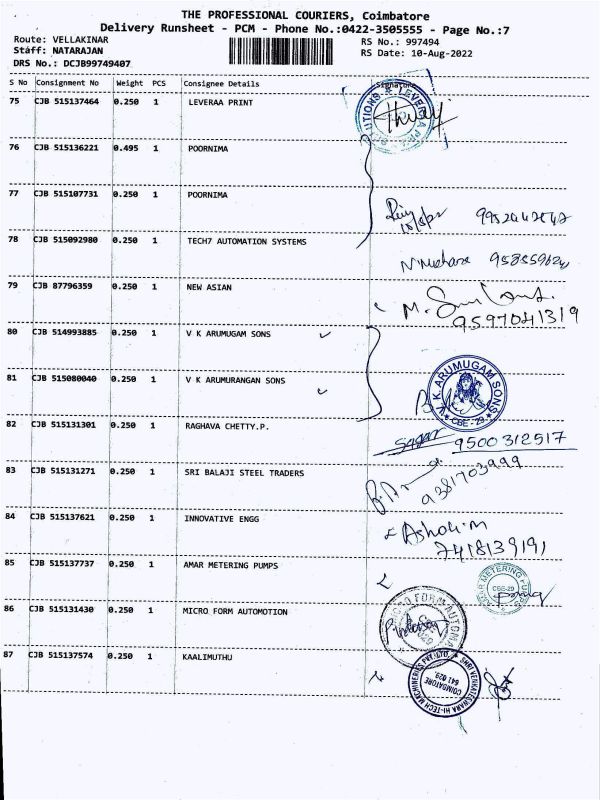 THE PROFESSIONAL COURIERS, Coimbatore
Delivery Runsheet - PCM - Phone No.:0422-3505555 - Page No.:7
Route: VELLAKINAR
Staff: NATARAJAN
DRS No.: DCJB99749407
RS No.: 997494
RS Date: 10-Aug-2022
S No Consignment No Weight PCS Consignee Details Signature
75 CJB 515137464 0.250 1 LEVERAA PRINT
76 CJB 515136221 0.495 1 POORNIMA
77 CJB 515107731 0.250 1 POORNIMA
78 CJB 515092980 0.250 1 TECH7 AUTOMATION SYSTEMS
79 CJB 87796359 0.250 1 NEW ASIAN
M.
9597041319
80 CJB 514993885 0.250 1 V K ARUMUGAM SONS
81 CJB 515080040 0.250 1 V K ARUMURANGAN SONS
V.K. ARUMUGAM SONS
CBE-29
82 CJB 515131301 0.250 1 RAGHAVA CHETTY.P.
Sagar 9500312517
83 CJB 515131271 0.250 1 SRI BALAJI STEEL TRADERS
9381703999
84 CJB 515137621 0.250 1 INNOVATIVE ENGG
Ashok.M
7418139191
85 CJB 515137737 0.250 1 AMAR METERING PUMPS
METERING PUMPS
CBE-29
86 CJB 515131430 0.250 1 MICRO FORM AUTOMOTION
87 CJB 515137574 0.250 1 KAALIMUTHU
SHRI VENKATESWARA HI-TECH MACHINERIES PVT. LTD.
COIMBATORE
641 029.